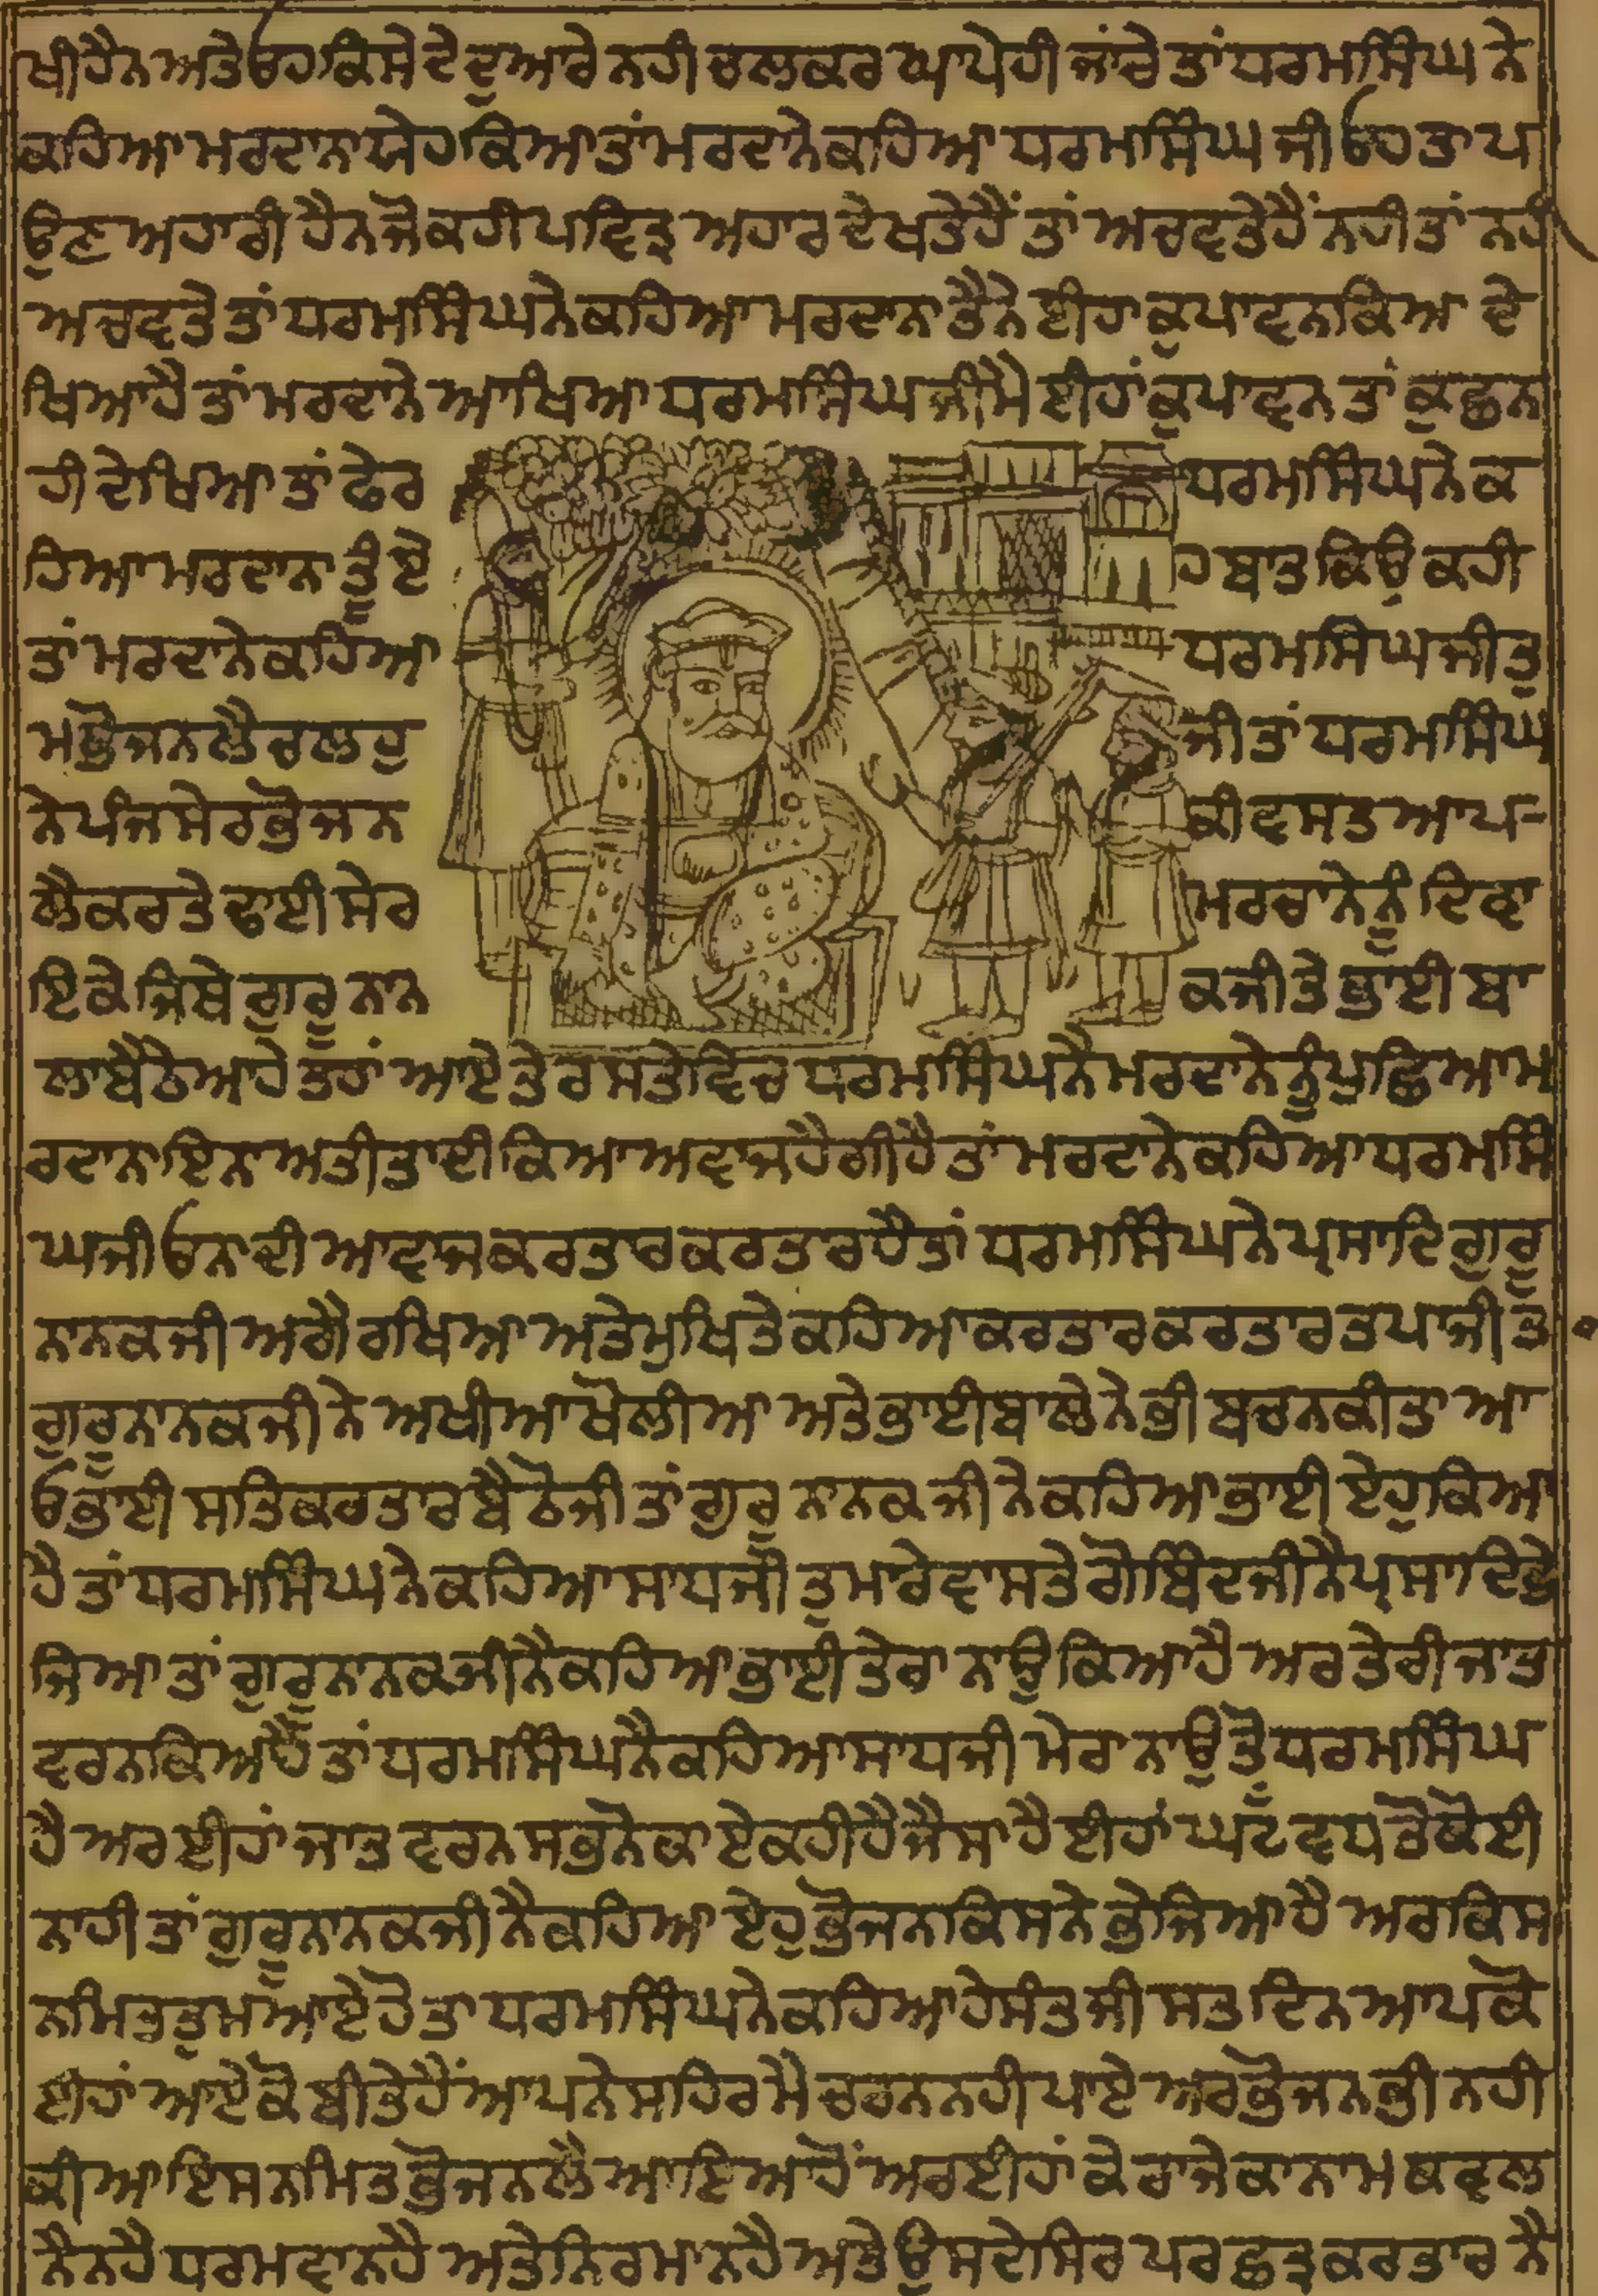 ਖੀ ਹੈਨ ਅਤੇ ਓਹ ਕਿਸੇ ਦੇ ਦੁਆਰੇ ਨਹੀ ਚਲਕਰ ਆਪੇ ਹੀ ਜਾਂਦੇ ਤਾਂ ਧਰਮਸਿੰਘ ਨੇ
ਕਹਿਆ ਮਰਦਾਨਾ ਯੇਹ ਕਿਆ ਤਾਂ ਮਰਦਾਨੇ ਕਹਿਆ ਧਰਮਸਿੰਘ ਜੀ ਓਹ ਤਾ ਪ
ਉਣ ਅਹਾਰੀ ਹੈਨ ਜੋ ਕਹੀ ਪਵਿਤ੍ਰ ਅਹਾਰ ਦੇਖਤੇ ਹੈਂ ਤਾਂ ਅਚਵਤੇ ਹੈਂ ਨਹੀ ਤਾਂ ਨਹੀ
ਅਚਵਤੇ ਤਾਂ ਧਰਮਸਿੰਘ ਨੇ ਕਹਿਆ ਮਰਦਾਨਾ ਤੈਨੇ ਈਹਾ ਕੁਪਾਵਨ ਕਿਆ ਦੇ
ਖਿਆ ਹੈ ਤਾਂ ਮਰਦਾਨੇ ਆਖਿਆ ਧਰਮਸਿੰਘ ਜੀ ਮੈ ਈਹਾਂ ਕੁਪਾਵਨ ਤਾਂ ਕੁਛ ਨ
ਹੀ ਦੇਖਿਆ ਤਾਂ ਫੇਰ ਧਰਮਸਿੰਘ ਨੇ ਕ
ਹਿਆ ਮਰਦਾਨਾ ਤੂੰ ਏ ਹ ਬਾਤ ਕਿਉ ਕਹੀ
ਤਾਂ ਮਰਦਾਨੇ ਕਹਿਆ ਧਰਮਸਿੰਘ ਜੀ ਤੁ
ਮ ਭੋਜਨ ਲੈ ਚਲਹੁ ਜੀ ਤਾਂ ਧਰਮਸਿੰਘ
ਨੇ ਪੰਜ ਸੇਰ ਭੋਜਨ ਕੀ ਵਸਤ ਆਪ
ਲੈਕਰ ਤੇ ਢਾਈ ਸੇਰ ਮਰਦਾਨੇ ਨੂੰ
ਇਕੇ ਜਿਥੇ ਗੁਰੂ ਨਾਨ ਕ ਜੀ ਤੇ ਭਾਈ ਬਾ
ਲਾ ਬੈਠੇ ਆਹੇ ਤਹਾਂ ਆਏ ਤੇ ਰਸਤੇ ਵਿਚ ਧਰਮਸਿੰਘ ਨੈ ਮਰਦਾਨੇ ਨੂੰ ਪੁਛਿਆ ਮ
ਰਦਾਨਾ ਇਨਾ ਅਤੀਤਾ ਦੀ ਕਿਆ ਅਵਾਜ ਹੈਗੀ ਹੈ ਤਾਂ ਮਰਦਾਨੇ ਕਹਿਆ ਧਰਮਸਿੰ
ਘ ਜੀ ਓਨ ਦੀ ਆਵਾਜ ਕਰਤਾਰ ਕਰਤਾਰ ਹੈ ਤਾਂ ਧਰਮਸਿੰਘ ਨੇ ਪ੍ਰਸਾਦਿ ਗੁਰੂ
ਨਾਨਕ ਜੀ ਅਗੈ ਰਖਿਆ ਅਤੇ ਮੁਖਿ ਤੇ ਕਹਿਆ ਕਰਤਾਰ ਕਰਤਾਰ ਤਪਾ ਜੀ ਤ
ਗੁਰੂ ਨਾਨਕ ਜੀ ਨੇ ਅਖੀਆ ਖੋਲੀਆ ਅਤੇ ਭਾਈ ਬਾਲੇ ਨੇ ਭੀ ਬਚਨ ਕੀਤਾ ਆ
ਓ ਭਾਈ ਸਤਿ ਕਰਤਾਰ ਬੈਠੋ ਜੀ ਤਾਂ ਗੁਰੂ ਨਾਨਕ ਜੀ ਨੇ ਕਹਿਆ ਭਾਈ ਏਹੁ ਕਿਆ
ਹੈ ਤਾਂ ਧਰਮਸਿੰਘ ਨੇ ਕਹਿਆ ਸਾਧ ਜੀ ਤੁਮਾਰੇ ਵਾਸਤੇ ਗੋਬਿੰਦ ਜੀ ਨੈ ਪ੍ਰਸਾਦਿ ਭੇ
ਜਿਆ ਤਾਂ ਗੁਰੂ ਨਾਨਕ ਜੀ ਨੈ ਕਹਿਆ ਭਾਈ ਤੇਰਾ ਨਾਉ ਕਿਆ ਹੈ ਅਰ ਤੇਰੀ ਜਾਤ
ਵਰਨ ਕਿਆ ਹੈ ਤਾਂ ਧਰਮਸਿੰਘ ਨੈ ਕਹਿਆ ਸਾਧ ਜੀ ਮੇਰਾ ਨਾਉ ਤੋ ਧਰਮਸਿੰਘ
ਹੈ ਅਰ ਈਹਾਂ ਜਾਤ ਵਰਨ ਸਭਨੋ ਕਾ ਏਕ ਹੀ ਹੈ ਜੈਸਾ ਹੈ ਈਹਾਂ ਘਾਟ ਵਧ ਤੋ ਕੋਈ
ਨਾਹੀ ਤਾਂ ਗੁਰੂ ਨਾਨਕ ਜੀ ਨੈ ਕਹਿਆ ਏਹੁ ਭੋਜਨ ਕਿਸਨੇ ਭੇਜਿਆ ਹੈ ਅਰ ਕਿਸ
ਨਮਿਤ ਤੁਮ ਆਏ ਹੋ ਤਾ ਧਰਮਸਿੰਘ ਨੇ ਕਹਿਆ ਹੇ ਸੰਤ ਜੀ ਸਤ ਦਿਨ ਆਪ ਕੋ
ਈਹਾਂ ਆਏ ਕੋ ਬੀਤੇ ਹੈਂ ਆਪਨੇ ਸਹਿਰ ਮੈ ਚਰਨ ਨਹੀ ਪਾਏ ਅਰ ਭੋਜਨ ਭੀ ਨਹੀ
ਕੀਆ ਇਸ ਨਮਿਤ ਭੋਜਨ ਲੈ ਆਇਆ ਹੋਂ ਅਰ ਈਹਾਂ ਕੇ ਰਾਜੇ ਕਾ ਨਾਮ ਕਵਲ
ਨੈਨ ਹੈ ਧਰਮਵਾਨ ਹੈ ਅਤੇ ਨਿਰਮਾਨ ਹੈ ਅਤੇ ਉਸਦੇ ਸਿਰ ਪਰ ਛਤ੍ਰ ਕਰਤਾਰ ਨੈ